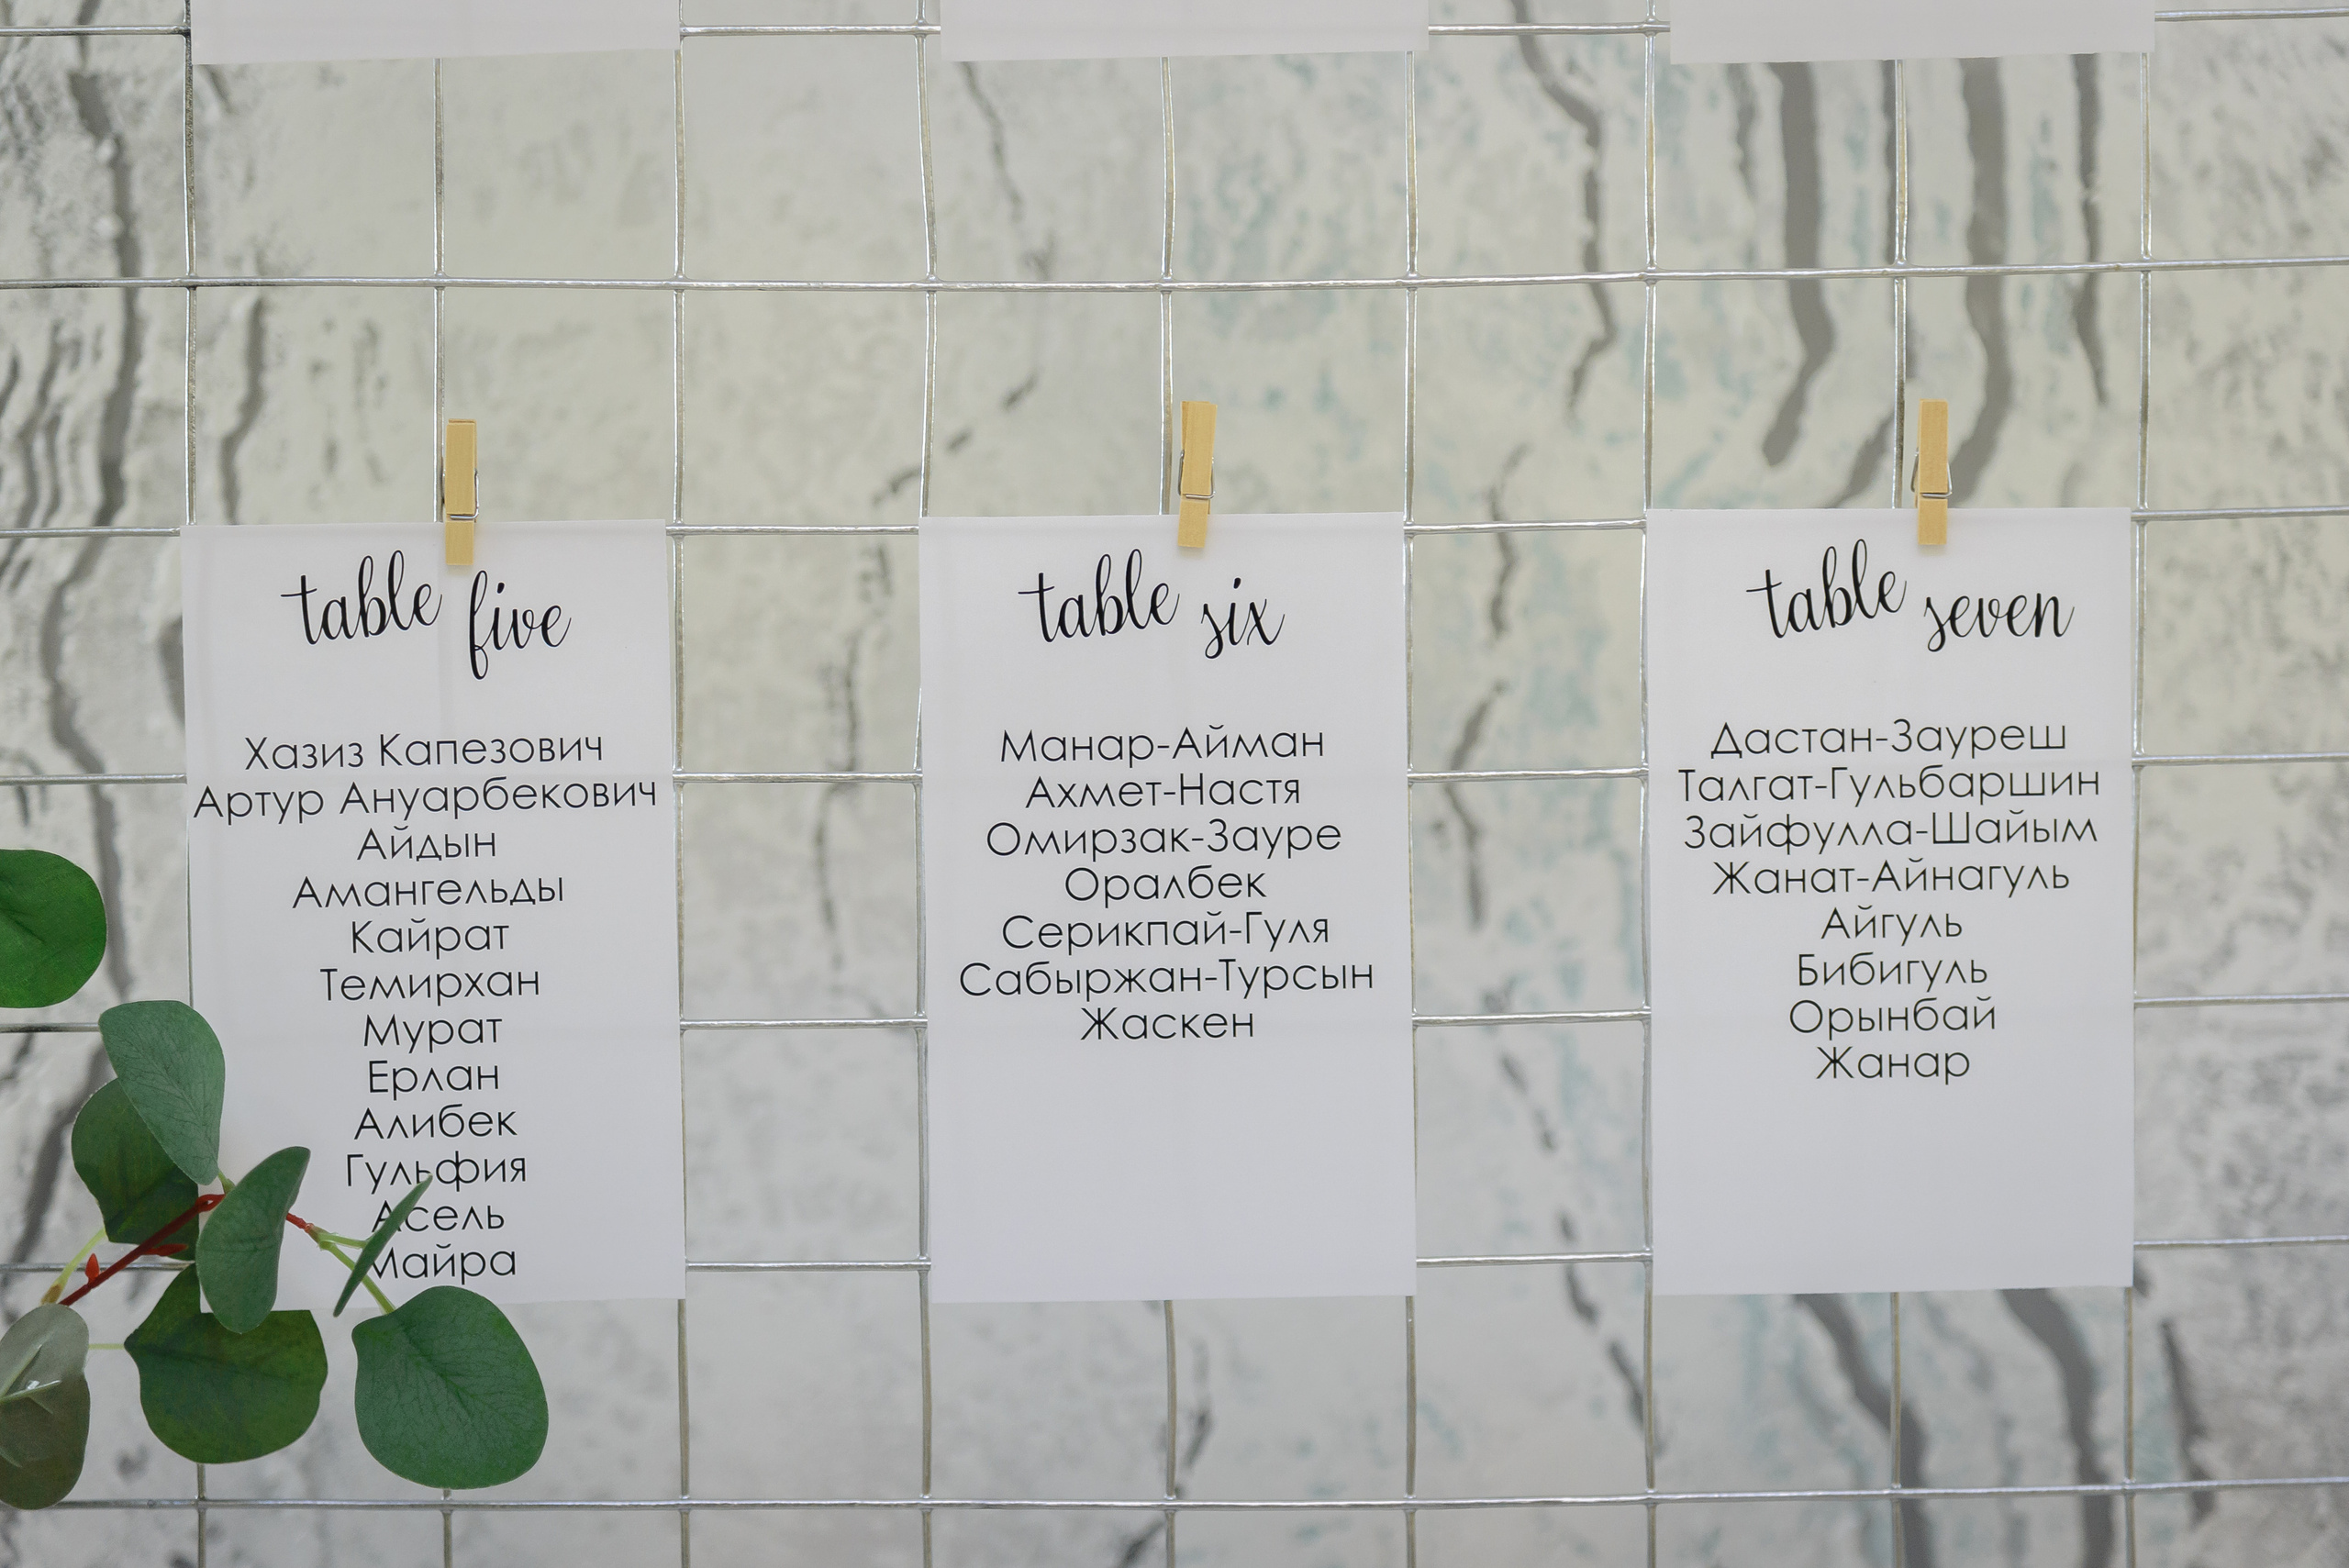 table five
Хазиз Капезович
Артур Ануарбекович
Айдын
Амангельды
Кайрат
Темирхан
Мурат
Ерлан
Алибек
Гульфия
Асель
Майра
table six
Манар-Айман
Ахмет-Настя
Омирзак-Зауре
Оралбек
Серикпай-Гуля
Сабыржан-Турсын
Жаскен
table seven
Дастан-Зауреш
Талгат-Гульбаршин
Зайфулла-Шайым
Жанат-Айнагуль
Айгуль
Бибигуль
Орынбай
Жанар